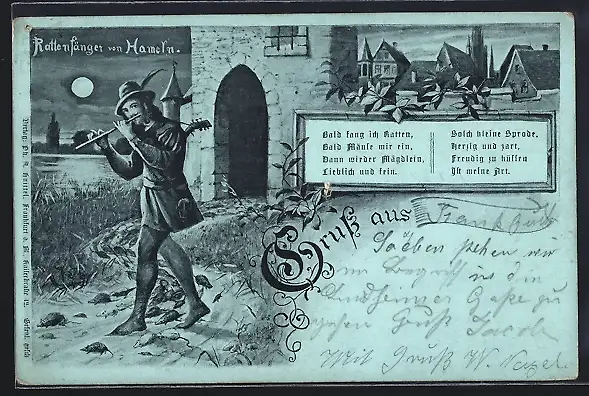 Rattenfänger von Hameln.
Bald fang ich Ratten,
Bald Mäuse mir ein,
Dann wieder Mägdlein,
Lieblich und fein.
Solch kleine Spröde,
Herzig und zart,
Freudig zu küssen
Ist meine Art.
Gruß aus Frankfurt
Soeben gehen wir
im Begriff in die
Gaße zu
gehen Gruß Jacob
Mit Gruß W.
Verlag: Frankfurt a. M.